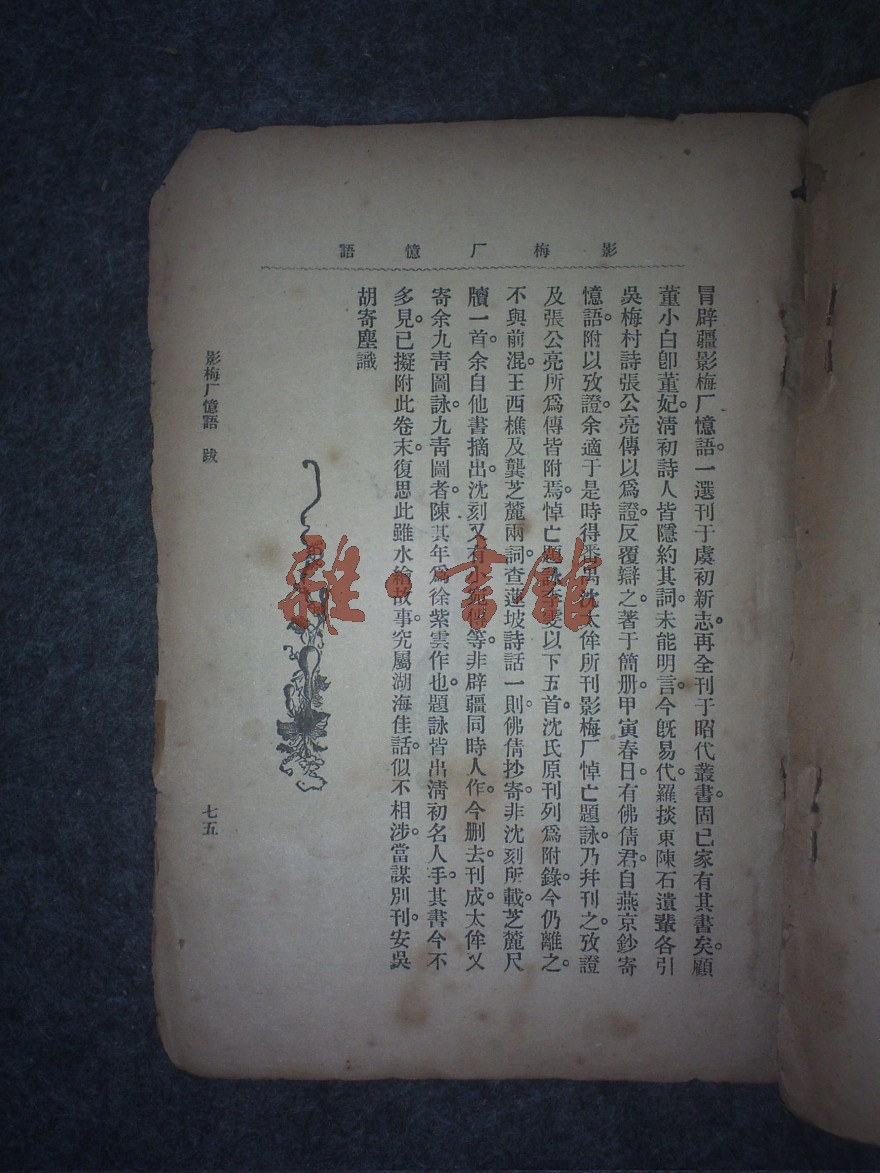 影梅厂憶語
冒辟疆影梅厂憶語。一選刊于虞初新志。再全刊于昭代叢書。固已家有其書矣。顧
董小白卽董妃。淸初詩人皆隱約其詞。未能明言。今旣易代。羅掞東陳石遺輩各引
吳梅村詩張公亮傳以爲證。反覆辯之。著于簡册。甲寅春日。有佛倩君。自燕京鈔寄
憶語。附以攷證。余適于是時得番禺沈太侔所刊影梅厂悼亡題詠。乃幷刊之。攷證
及張公亮所爲傳皆附焉。悼亡題詠李雯以下五首。沈氏原刊列爲附錄。今仍離之。
不與前混。王西樵及龔芝麓兩詞。查蓮坡詩話一則。佛倩抄寄。非沈刻所載。芝麓尺
牘一首。余自他書摘出。沈刻又有小宛傳等。非辟疆同時人作。今删去。刊成。太侔又
寄余九靑圖詠。九靑圖者。陳其年爲徐紫雲作也。題詠皆出淸初名人手。其書今不
多見。已擬附此卷末。復思此雖水繪故事。究屬湖海佳話。似不相涉。當謀別刊。安吳
胡寄塵識
影梅厂憶語 跋
七五
雜·書館